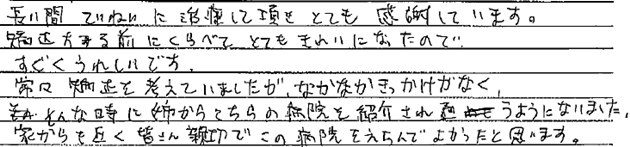 長い間ていねいに治療して頂きとても感謝しています。
矯正する前にくらべてとてもきれいになったので
すごくうれしいです。
常々矯正を考えていましたが、なかなかきっかけがなく、
そんな時に姉からこちらの病院を紹介され通うようになりました。
家からも近く皆さん親切でこの病院をえらんでよかったと思います。